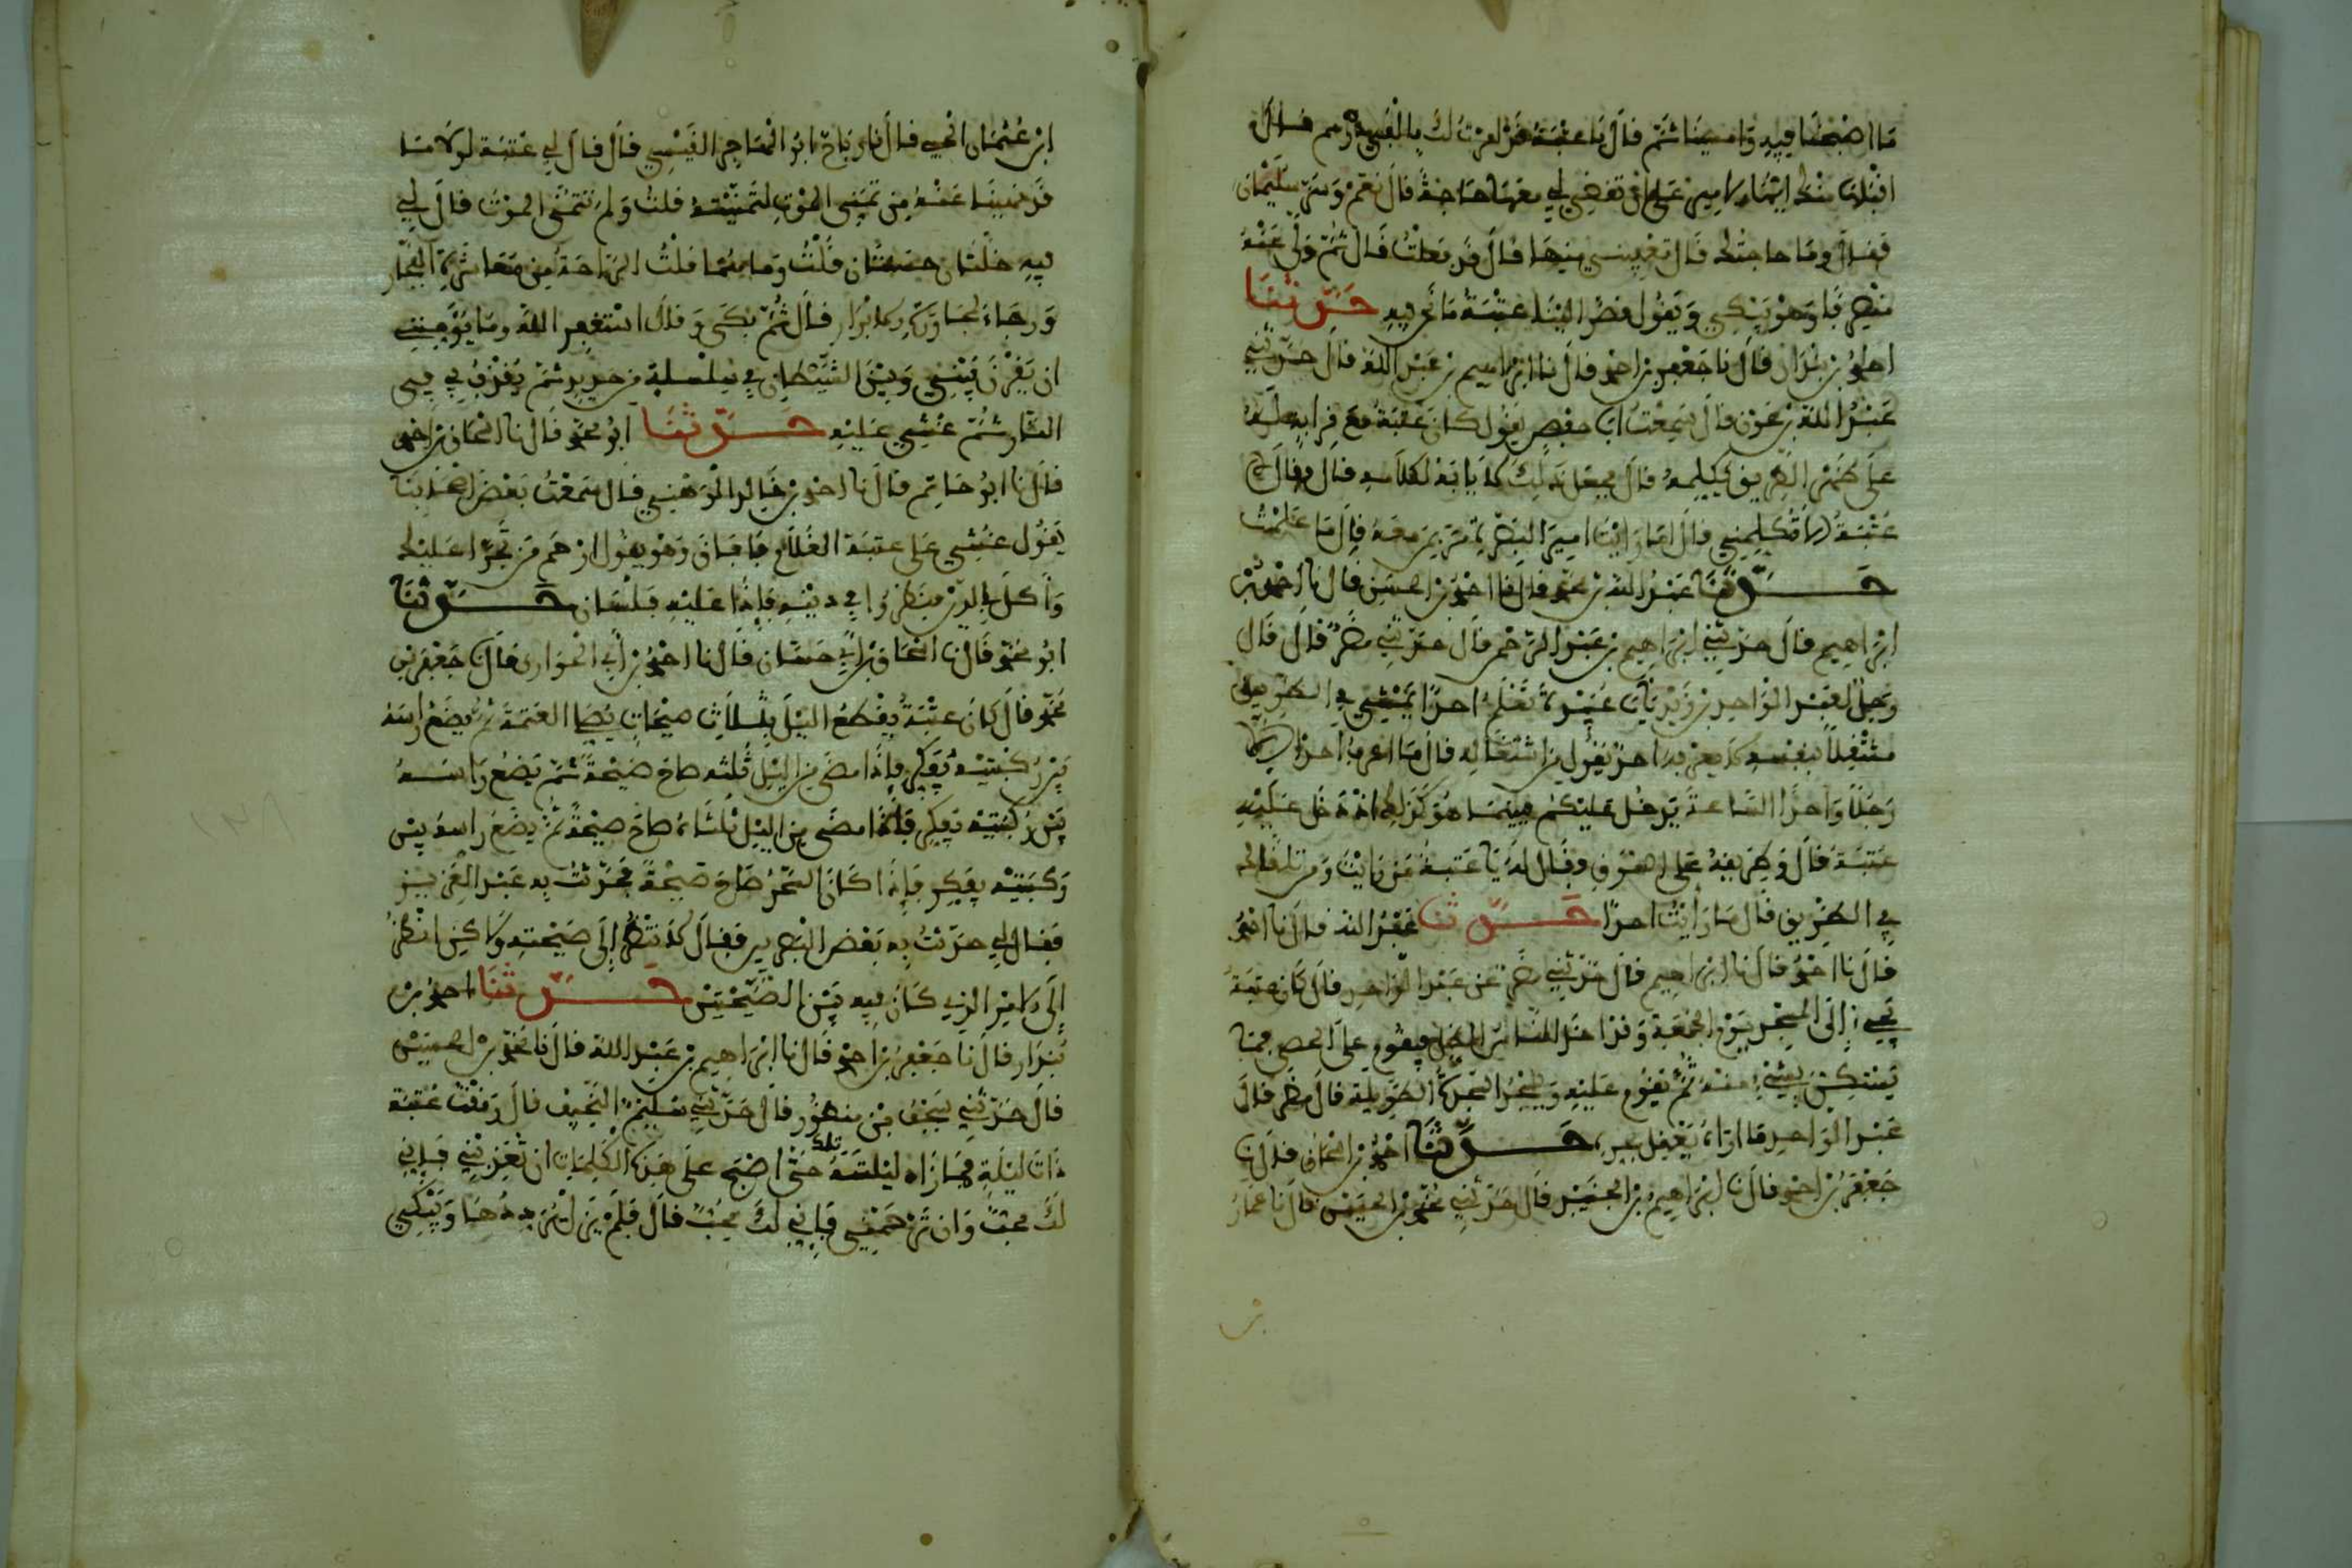 ما اصبحنا فيه وامسينا ثم قال يا عتبة قد امرت لك بالفي درهم قال
اقبلها منك ايها الامير على ان تقضي لي معها حاجة قال نعم وسر سليمان
فقال وما حاجتك قال تعفيني منها قال قد فعلت قال ثم ولى عنه
منصرفا وهو يبكي ويقول قصر الينا عتبة ما نحن فيه حدثنا
احمد بن بندار قال نا جعفر بن احمد قال نا ابراهيم بن عبد الله قال حدثني
عبد الله بن عون قال سمعت ابا حفص يقول كان عتبة مع قرابة له
على ظهر الطريق يكلمه قال فجعل ذلك لا يابه لكلامه قال وقال
عتبة الا تكلمني قال اما رايت امير البصرة مر بمن معه قال ما علمت
حدثنا عبد الله بن محمد قال نا احمد بن الحسين قال نا احمد بن
ابراهيم قال حدثني ابراهيم بن عبد الرحمن قال حدثني مضر قال قال
رجل لعبد الواحد بن زيد يا ابا عبيد ا تعلم احدا يمشي في الطريق
مشتغلا بنفسه لا يعرفه احد يقول من اشتغاله قال ما اعرف احدا الا
رجلا واحدا الساعة يدخل عليكم فبينما هو كذلك اذ دخل عليه
عتبة قال وطريقه على السوق فقال له يا عتبة من رايت ومن تلقاك
في الطريق قال ما رأيت احدا حدثنا عبد الله قال نا احمد
قال نا احمد قال نا ابراهيم قال حدثني مضر عن عبد الواحد قال كان عتبة
يجيء إلى المسجد يوم الجمعة وقد اخذ الناس الظل فيقوم على الحصى فما
ينتكس بشيء منه ثم يقوم عليه ويسجد السجدة الطويلة قال مضر قال
عبد الواحد ما اراه يعقل بحره حدثنا احمد بن اسحاق قال نا
جعفر بن احمد قال نا ابراهيم بن الجنيد قال حدثني محمد بن الحسين قال نا عمار
ابن عثمان الحلبي قال نا رباح ابو المهاجر القيسي قال قال لي عتبة لولا ما
قد نهينا عنه من تمني الموت لتمنيته قلت ولم تتمنى الموت قال لي
فيه خلتان حسنتان قلت وما هما قلت الراحة من معاشرة الفجار
ورجاء لمجاورة الابرار قال ثم بكى وقال استغفر الله وما يؤمنني
ان يقرن بيني وبين الشيطان في سلسلة من حديد ثم يقذف بي في
النار ثم غشي عليه حدثنا ابو محمد قال نا اسحاق بن احمد
قال نا ابو حاتم قال نا احمد بن خالد الوهبي قال سمعت بعض اصحابنا
يقول غشي على عتبة الغلام فافاق وهو يقول ارحم من تجرا عليك
واكل بالدين فنظروا في دينه فاذا عليه فلسان حدثنا
ابو محمد قال نا اسحاق بن أبي حسان قال نا احمد بن أبي الحواري قال نا جعفر بن
محمد قال كان عتبة يقطع الليل بثلاث صيحات يصلي العتمة ثم يضع راسه
بين ركبتيه يفكر فإذا مضى من الليل ثلثه صاح صيحة ثم يضع راسه
بين ركبتيه يفكر فإذا مضى من الليل ثلثاه صاح صيحة ثم يضع راسه بين
ركبتيه يفكر فإذا كان السحر صاح صيحة فحدثت به عبد العزيز
فقال لي حدثت به بعض البصريين فقال لا تنظر إلى صيحته ولكن انظر
إلى الامر الذي كان فيه بين الصيحتين حدثنا احمد بن
بندار قال نا جعفر بن احمد قال نا ابراهيم بن عبد الله قال نا محمد بن الحسين
قال حدثني سجف بن منظور قال حدثني سليم النحيف قال رمقت عتبة
ذات ليلة فما زاد ليلته تلك حتى اصبح على هذه الكلمات ان تعذبني فاني
لك محب وان ترحمني فإني لك محب قال فلم يزل يرددها ويبكي